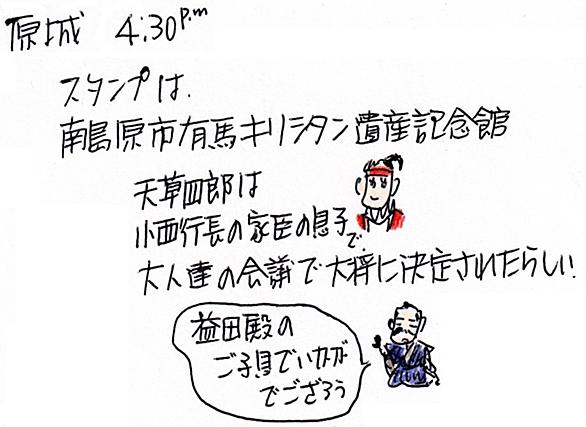 原城 4:30 p.m
スタンプは、
南島原市有馬キリシタン遺産記念館
天草四郎は
小西行長の家臣の息子で、
大人達の会議で大将に決定されたらしい!
益田殿の
ご子息でいかがが
でござろう